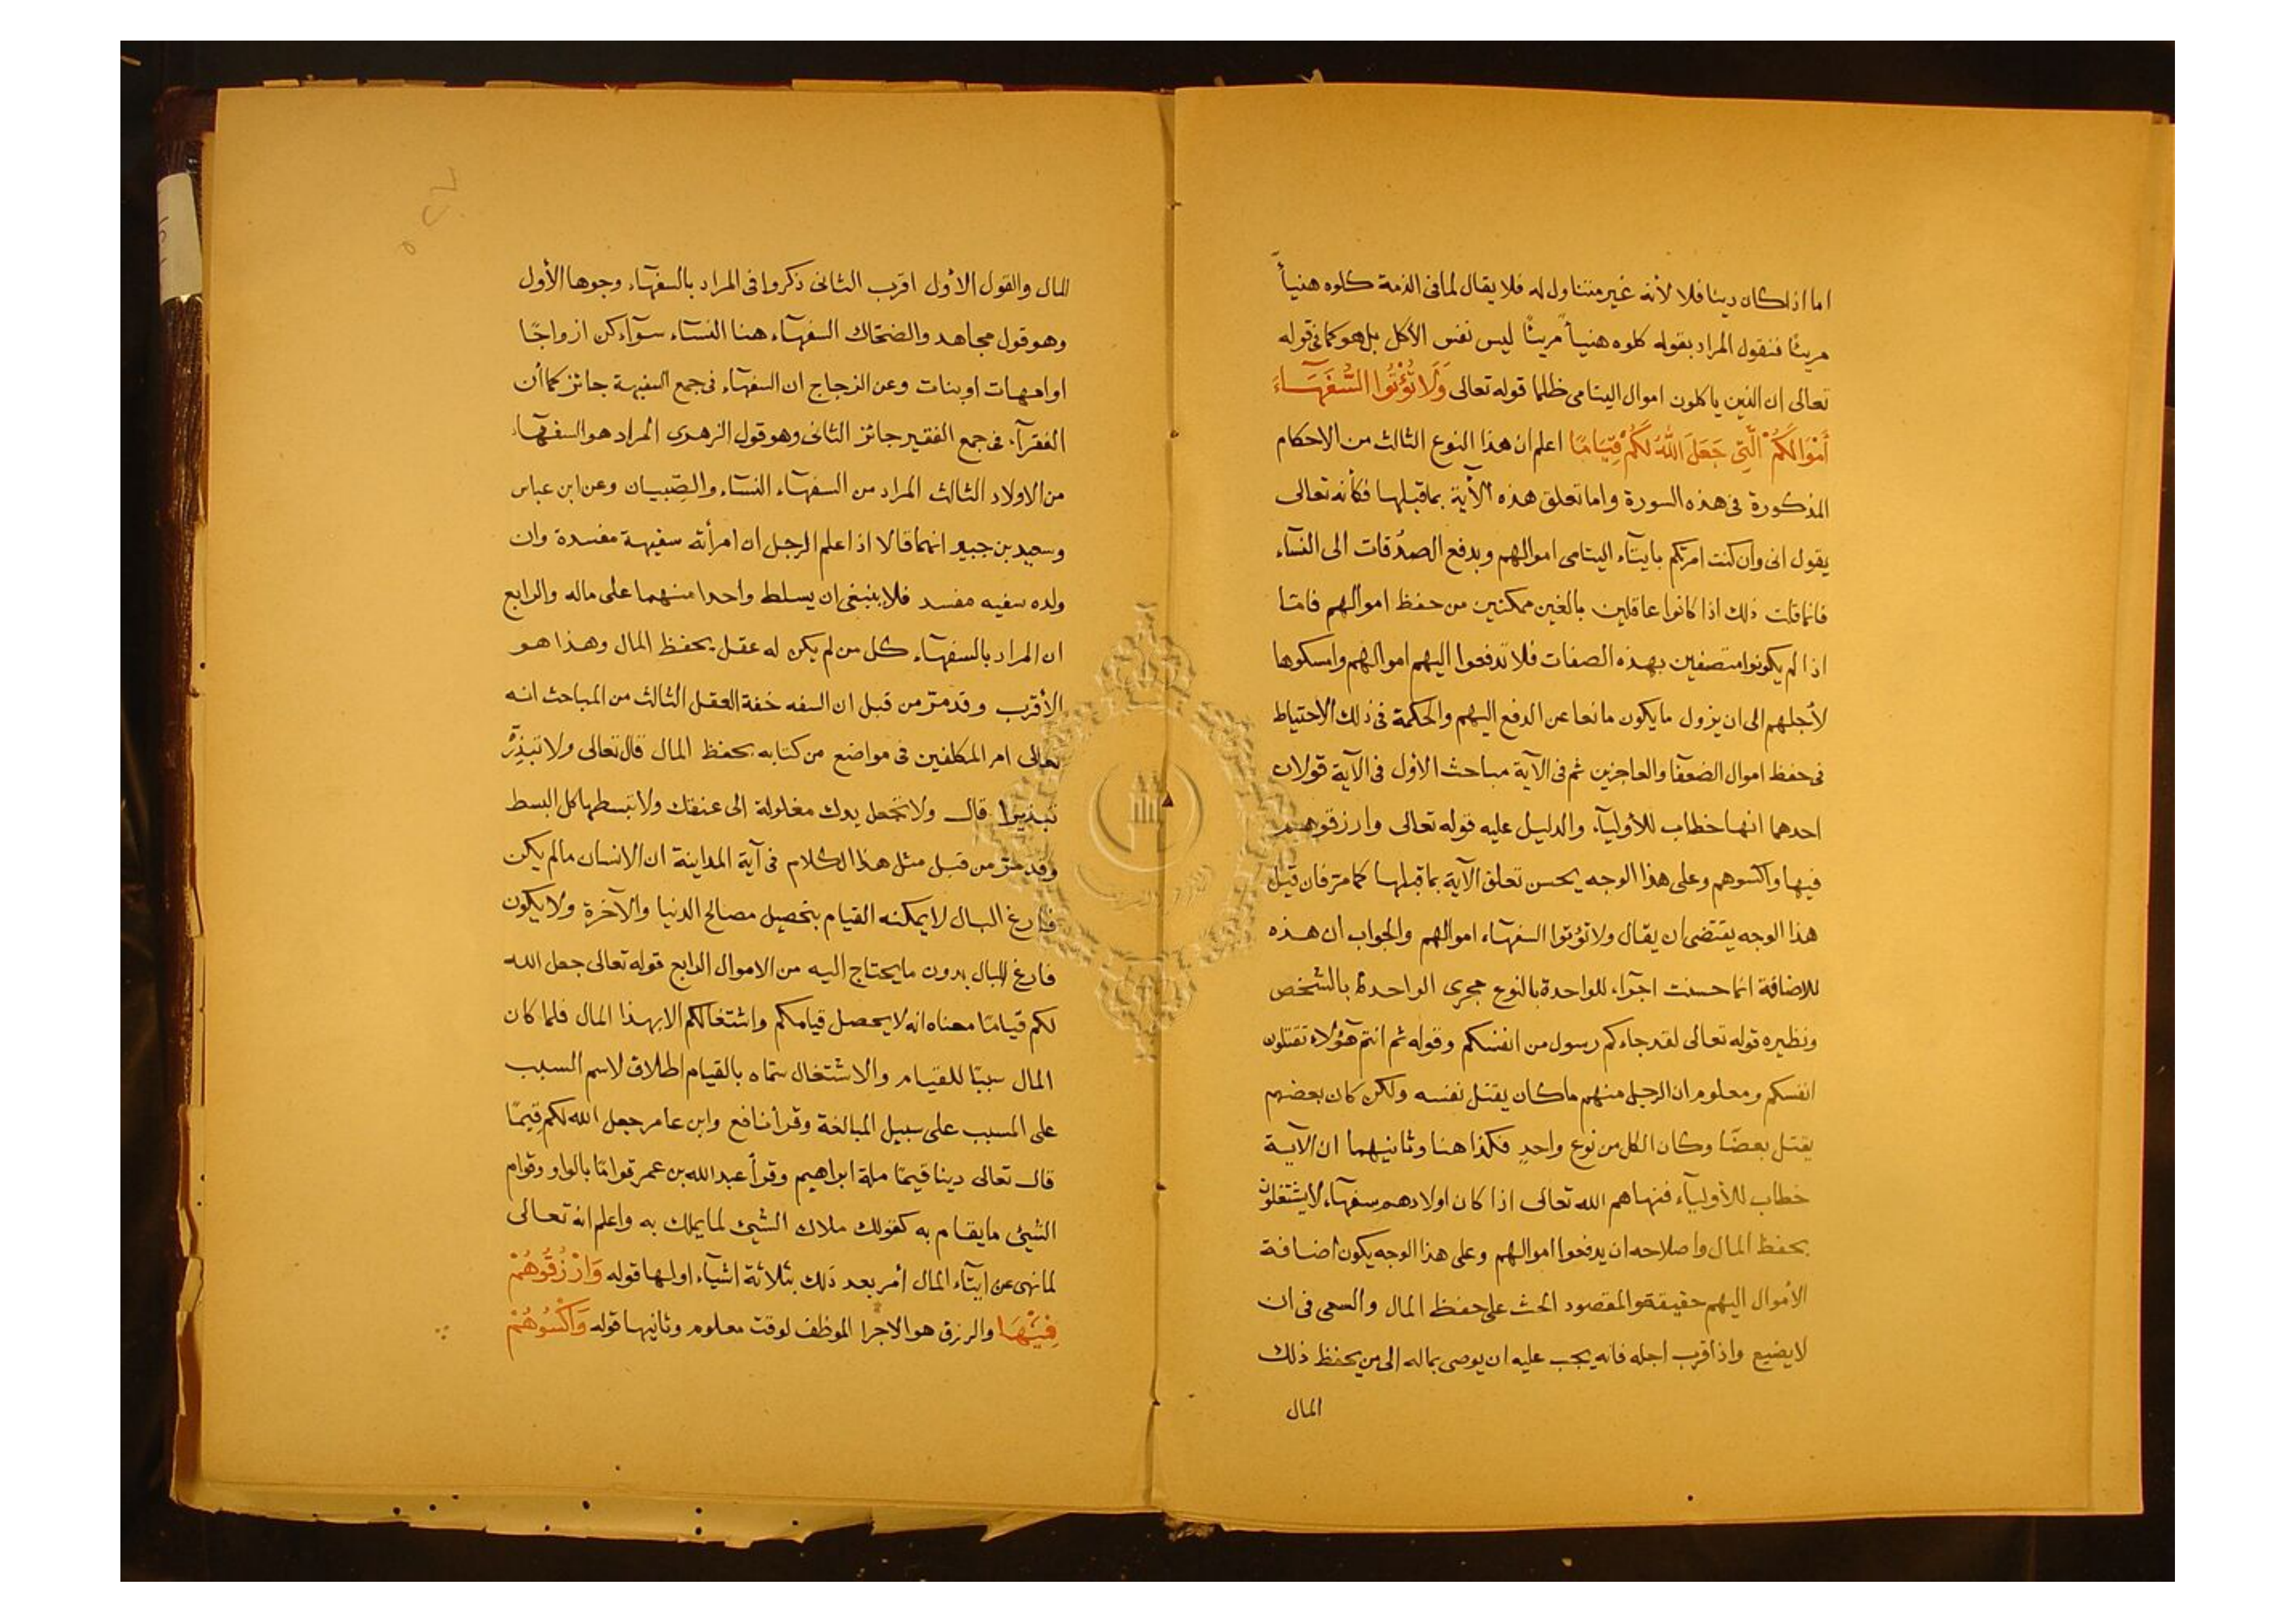 اما اذا كان دينا فلا لأنه غير متناول له فلا يقال لما فى الذمة كلوه هنيأً
مريئًا فنقول المراد بقوله كلوه هنيأً مريئًا ليس نفس الأكل بل هو كما فى قوله
تعالى ان الذين ياكلون اموال اليتامى ظلما قوله تعالى وَلَا تُؤْتُوا السُّفَهَآءَ
أَمْوَالَكُمْ الَّتِى جَعَلَ اللهُ لَكُمْ قِيَامًا اعلم ان هذا النوع الثالث من الاحكام
المذكورة فى هذه السورة واما تعلق هذه الآية بما قبلها فكأنه تعالى
يقول انى وان كنت امرتكم بايتآء اليتامى اموالهم وبدفع الصدُقات الى النسآء
فانما قلت ذلك اذا كانوا عاقلين بالغين ممكنين من حفظ اموالهم فامّا
اذا لم يكونوا متصفين بهذه الصفات فلا تدفعوا اليهم اموالهم وامسكوها
لأجلهم الى ان يزول ما يكون مانعا عن الدفع اليهم والحكمة فى ذلك الاحتياط
فى حفظ اموال الضعفآ والعاجزين ثم فى الآية مباحث الأول فى الآية قولان
احدهما انها خطاب للأوليآء والدليل عليه قوله تعالى وارزقوهم
فيها واكسوهم وعلى هذا الوجه يحسن تعلق الآية بما قبلها كما مرّ فان قيل
هذا الوجه يقتضى ان يقال ولا تؤتوا السفهآء اموالهم والجواب ان هذه
للاضافة انما حسنت اجرآء للواحدة بالنوع مجرى الواحدة بالشخص
ونظيره قوله تعالى لقد جاءكم رسول من انفسكم وقوله ثم انتم هؤلاء تقتلون
انفسكم ومعلوم ان الرجل منهم ما كان يقتل نفسه ولكن كان بعضهم
يقتل بعضًا وكان الكل من نوع واحدٍ فكذا هنا وثانيهما ان الآية
خطاب للأوليآء فنهاهم الله تعالى اذا كان اولادهم سفهآء لا يشتغلون
بحفظ المال واصلاحه ان يدفعوا اموالهم وعلى هذا الوجه يكون اضافة
الأموال اليهم حقيقة والمقصود الحث على حفظ المال والسعى فى ان
لا يضيع واذا قرب اجله فانه يجب عليه ان يوصى بماله الى من يحفظ ذلك
المال
للمال والقول الاول اقرب الثانى ذكروا فى المراد بالسفهآء وجوها الأول
وهو قول مجاهد والضحّاك السفهآء هنا النسآء سوآء كن ازواجًا
او امهات او بنات وعن الزجاج ان السفهآء فى جمع السفيهة جائز كما أن
الفقرآء فى جمع الفقير جائز الثانى وهو قول الزهرى المراد هو السفهآء
من الاولاد الثالث المراد من السفهآء النسآء والصِّبيان وعن ابن عباس
وسعيد بن جبير انهما قالا اذا علم الرجل ان امرأته سفيهة مفسدة وان
ولده سفيه مفسد فلا ينبغى ان يسلط واحدا منهما على ماله والرابع
ان المراد بالسفهآء كل من لم يكن له عقل يحفظ المال وهذا هو
الأقرب وقد مرّ من قبل ان السفه خفة العقل الثالث من المباحث انه
تعالى امر المكلفين فى مواضع من كتابه بحفظ المال قال تعالى ولا تبذّرْ
تبذيرا قال ولا تجعل يدك مغلولة الى عنقك ولا تبسطها كل البسط
وقد مرّ من قبل مثل هذا الكلام فى آية المداينة ان الانسان ما لم يكن
فارغ البال لا يمكنه القيام بتحصيل مصالح الدنيا والآخرة ولا يكون
فارغ البال بدون ما يحتاج اليه من الاموال الرابع قوله تعالى جعل الله
لكم قيامًا معناه انه لا يحصل قيامكم واشتغالكم الا بهذا المال فلما كان
المال سببًا للقيام والاشتغال سمّاه بالقيام اطلاق لاسم السبب
على المسبب على سبيل المبالغة وقرأ نافع وابن عامر جعل الله لكم قِيَمًا
قال تعالى دينا قيمًا ملة ابراهيم وقرأ عبد الله بن عمر قوامًا بالواو وقوام
الشيئ ما يقام به كقولك ملاك الشيئ لما يملك به واعلم انه تعالى
لما نهى عن ايتآء المال أمر بعد ذلك بثلاثة اشيآء اولها قوله وَارْزُقُوهُمْ
فِيْهَا والرزق هو الاجرا الموظف لوقت معلوم وثانيها قوله وَاكْسُوهُمْ